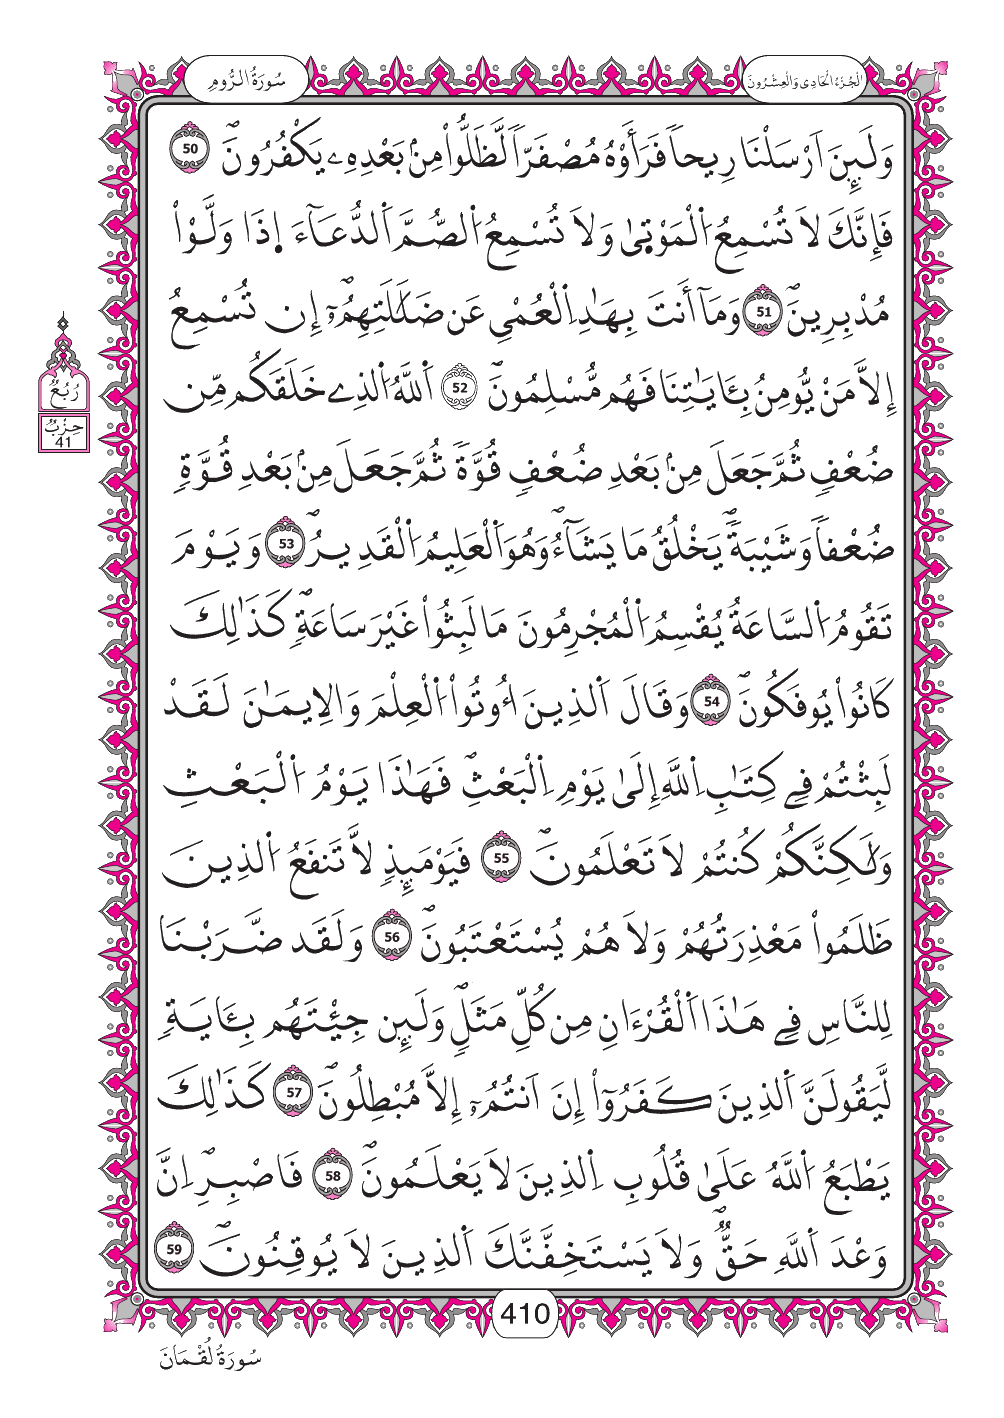 الجُزْءُ الحَادِي وَالعِشْرُونَ
سُورَةُ الرُّومِ
وَلَئِنَ اَرْسَلْنَا رِيحاً فَرَأَوْهُ مُصْفَرّاً لَّظَلُّواْ مِنۢ بَعْدِهِۦ يَكْفُرُونَۖ 50
فَإِنَّكَ لَا تُسْمِعُ اُ۬لْمَوْت۪يٰ وَلَا تُسْمِعُ اُ۬لصُّمَّ اَ۬لدُّعَآءَ اِذَا وَلَّوْاْ
مُدْبِرِينَۖ 51 وَمَآ أَنتَ بِهَٰدِ اِ۬لْعُمْيِ عَن ضَلَٰلَتِهِمُۥٓۖ إِن تُسْمِعُ
إِلَّا مَنْ يُّومِنُ بِـَٔايَٰتِنَا فَهُم مُّسْلِمُونَۖ 52 اَ۬للَّهُ اُ۬لذِے خَلَقَكُم مِّن
رُبُعُ
حِزْبُ
41
ضُعْفٖ ثُمَّ جَعَلَ مِنۢ بَعْدِ ضُعْفٖ قُوَّةٗ ثُمَّ جَعَلَ مِنۢ بَعْدِ قُوَّةٖ
ضُعْفاً وَشَيْبَةٗۖ يَخْلُقُ مَا يَشَآءُۖ وَهُوَ اَ۬لْعَلِيمُ اُ۬لْقَدِيرُۖ 53 وَيَوْمَ
تَقُومُ اُ۬لسَّاعَةُ يُقْسِمُ اُ۬لْمُجْرِمُونَ مَا لَبِثُواْ غَيْرَ سَاعَةٖۖ كَذَٰلِكَ
كَانُواْ يُوفَكُونَۖ 54 وَقَالَ اَ۬لذِينَ أُوتُواْ اُ۬لْعِلْمَ وَالِايمَٰنَ لَقَدْ
لَبِثْتُمْ فِے كِتَٰبِ اِ۬للَّهِ إِلَىٰ يَوْمِ اِ۬لْبَعْثِۖ فَهَٰذَا يَوْمُ اُ۬لْبَعْثِ
وَلَٰكِنَّكُمْ كُنتُمْ لَا تَعْلَمُونَۖ 55 فَيَوْمَئِذٖ لَّا تَنفَعُ اُ۬لذِينَ
ظَلَمُواْ مَعْذِرَتُهُمْ وَلَا هُمْ يُسْتَعْتَبُونَۖ 56 وَلَقَد ضَّرَبْنَا
لِلنَّاسِ فِے هَٰذَا اَ۬لْقُرْءَانِ مِن كُلِّ مَثَلٖۖ وَلَئِن جِئْتَهُم بِـَٔايَةٖ
لَّيَقُولَنَّ اَ۬لذِينَ كَفَرُوٓاْ إِنَ اَنتُمُۥٓ إِلَّا مُبْطِلُونَۖ 57 كَذَٰلِكَ
يَطْبَعُ اُ۬للَّهُ عَلَىٰ قُلُوبِ اِ۬لذِينَ لَا يَعْلَمُونَۖ 58 فَاصْبِرِۖ اِنَّ
وَعْدَ اَ۬للَّهِ حَقّٞۖ وَلَا يَسْتَخِفَّنَّكَ اَ۬لذِينَ لَا يُوقِنُونَۖ 59
410
سُورَةُ لُقْمَانَ